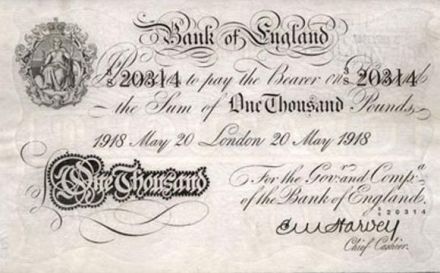 Bank of England
3/S 20314 to pay the Bearer on 3/S 20314
the Sum of One Thousand Pounds,
1918 May 20 London 20 May 1918
For the Govr. and Compa.
One Thousand
of the Bank of England.
3/S 20314
E M Harvey
Chief Cashier.